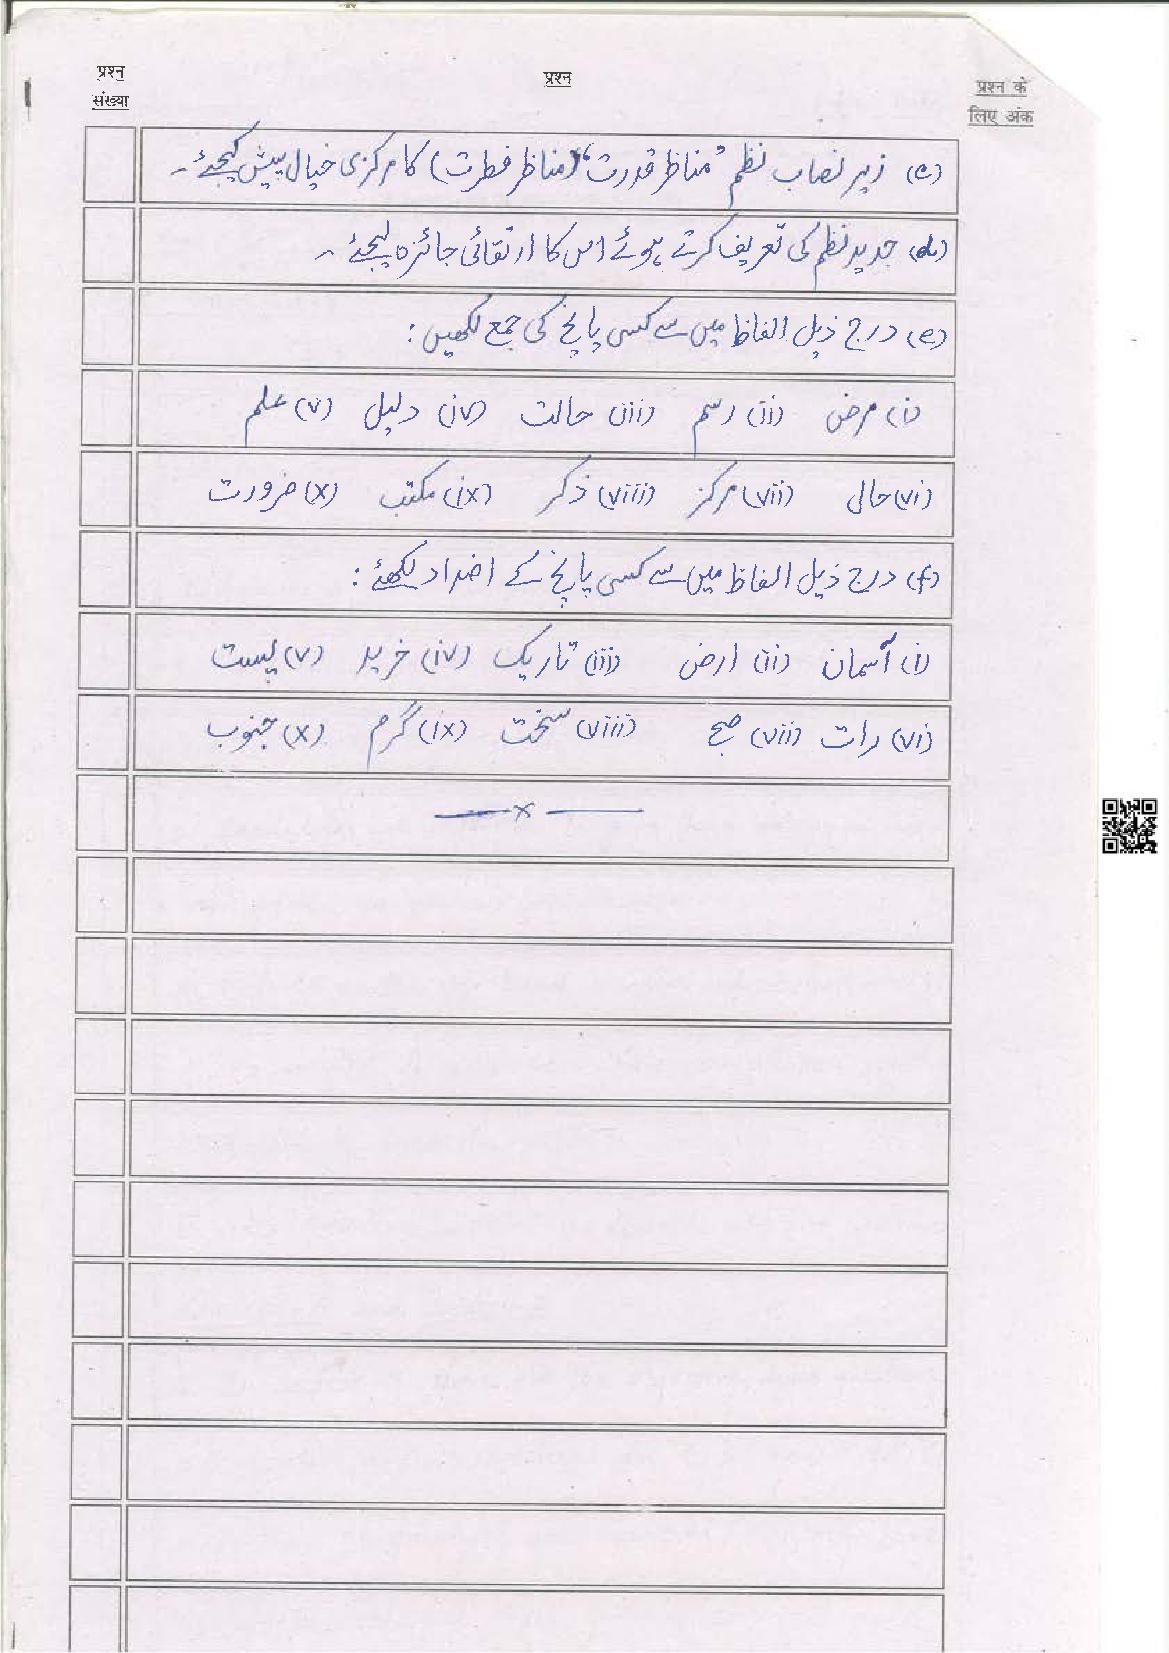 प्रश्न संख्या
प्रश्न
प्रश्न के लिए अंक
(c) زیر نصاب نظم "مناظر قدرت" (مناظر فطرت) کا مرکزی خیال پیش کیجئے۔
(d) جدید نظم کی تعریف کرتے ہوئے اس کا ارتقائی جائزہ لیجئے۔
(e) درج ذیل الفاظ میں سے کسی پانچ کی جمع لکھیں:
(i) مرض (ii) رسم (iii) حالت (iv) دلیل (v) علم
(vi) حال (vii) مرکز (viii) ذکر (ix) مکتب (x) ضرورت
(f) درج ذیل الفاظ میں سے کسی پانچ کے اضداد لکھئے:
(i) آسمان (ii) ارض (iii) تاریک (iv) خرید (v) پست
(vi) رات (vii) صبح (viii) سخت (ix) گرم (x) جنوب
—x—